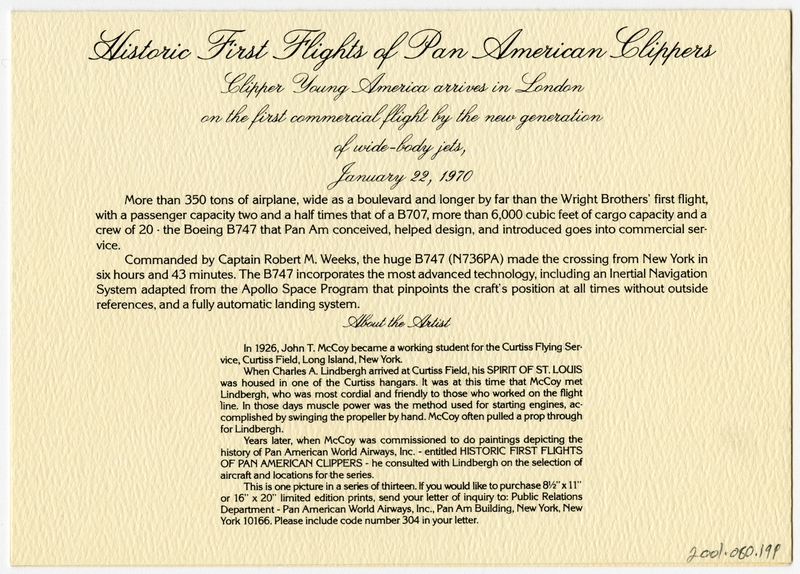 Historic First Flights of Pan American Clippers
Clipper Young America arrives in London
on the first commercial flight by the new generation
of wide-body jets,
January 22, 1970
More than 350 tons of airplane, wide as a boulevard and longer by far than the Wright Brothers' first flight,
with a passenger capacity two and a half times that of a B707, more than 6,000 cubic feet of cargo capacity and a
crew of 20 - the Boeing B747 that Pan Am conceived, helped design, and introduced goes into commercial ser-
vice.
Commanded by Captain Robert M. Weeks, the huge B747 (N736PA) made the crossing from New York in
six hours and 43 minutes. The B747 incorporates the most advanced technology, including an Inertial Navigation
System adapted from the Apollo Space Program that pinpoints the craft's position at all times without outside
references, and a fully automatic landing system.
About the Artist
In 1926, John T. McCoy became a working student for the Curtiss Flying Ser-
vice, Curtiss Field, Long Island, New York.
When Charles A. Lindbergh arrived at Curtiss Field, his SPIRIT OF ST. LOUIS
was housed in one of the Curtiss hangars. It was at this time that McCoy met
Lindbergh, who was most cordial and friendly to those who worked on the flight
line. In those days muscle power was the method used for starting engines, ac-
complished by swinging the propeller by hand. McCoy often pulled a prop through
for Lindbergh.
Years later, when McCoy was commissioned to do paintings depicting the
history of Pan American World Airways, Inc. - entitled HISTORIC FIRST FLIGHTS
OF PAN AMERICAN CLIPPERS - he consulted with Lindbergh on the selection of
aircraft and locations for the series.
This is one picture in a series of thirteen. If you would like to purchase 8½" x 11"
or 16" x 20" limited edition prints, send your letter of inquiry to: Public Relations
Department - Pan American World Airways, Inc., Pan Am Building, New York, New
York 10166. Please include code number 304 in your letter.
2001.080.199